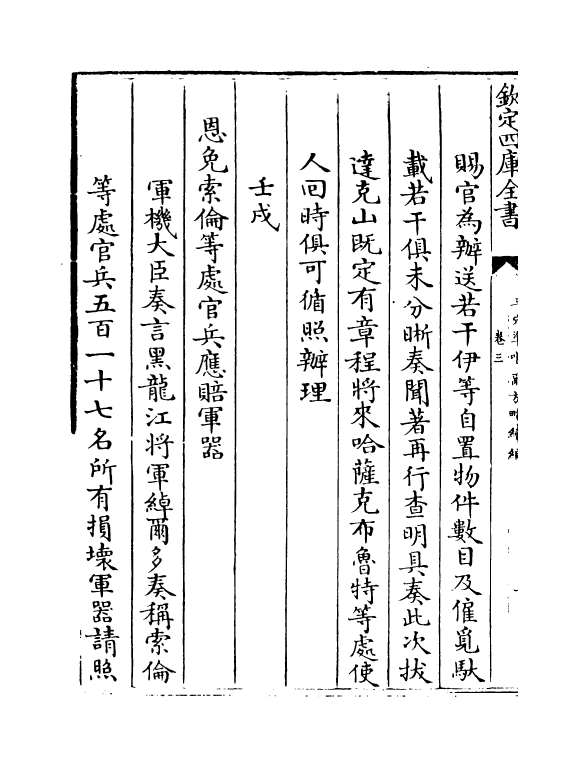 欽定四庫全書
卷三
賜官為辦送若干伊等自置物件數目及僱覓馱
載若干俱未分晰奏聞著再行查明具奏此次拔
達克山既定有章程將來哈薩克布魯特等處使
人回時俱可循照辦理
壬戌
恩免索倫等處官兵應賠軍器
軍機大臣奏言黑龍江將軍綽爾多奏稱索倫
等處官兵五百一十七名所有損壞軍器請照